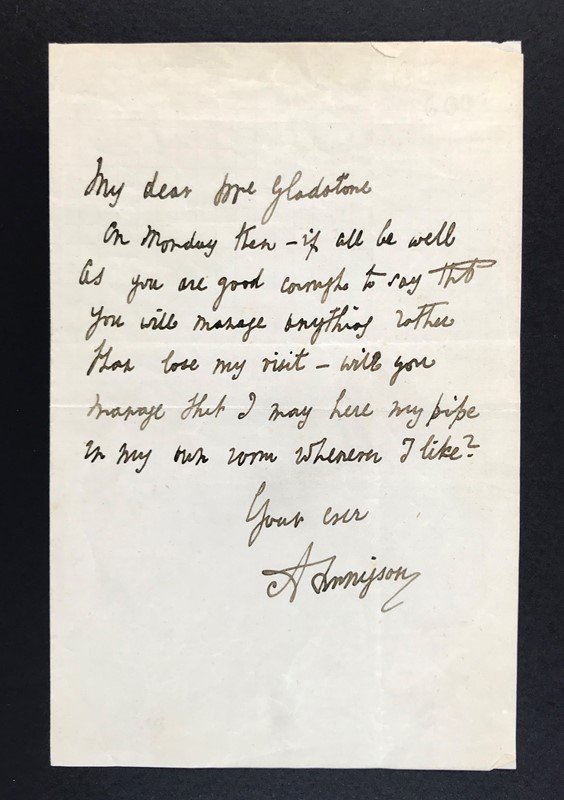 My dear Mrs Gladstone
On Monday then - if all be well
As you are good enough to say that
you will manage anything rather
than lose my visit - will you
manage that I may have my pipe
in my own room whenever I like?
Your ever
A Tennyson